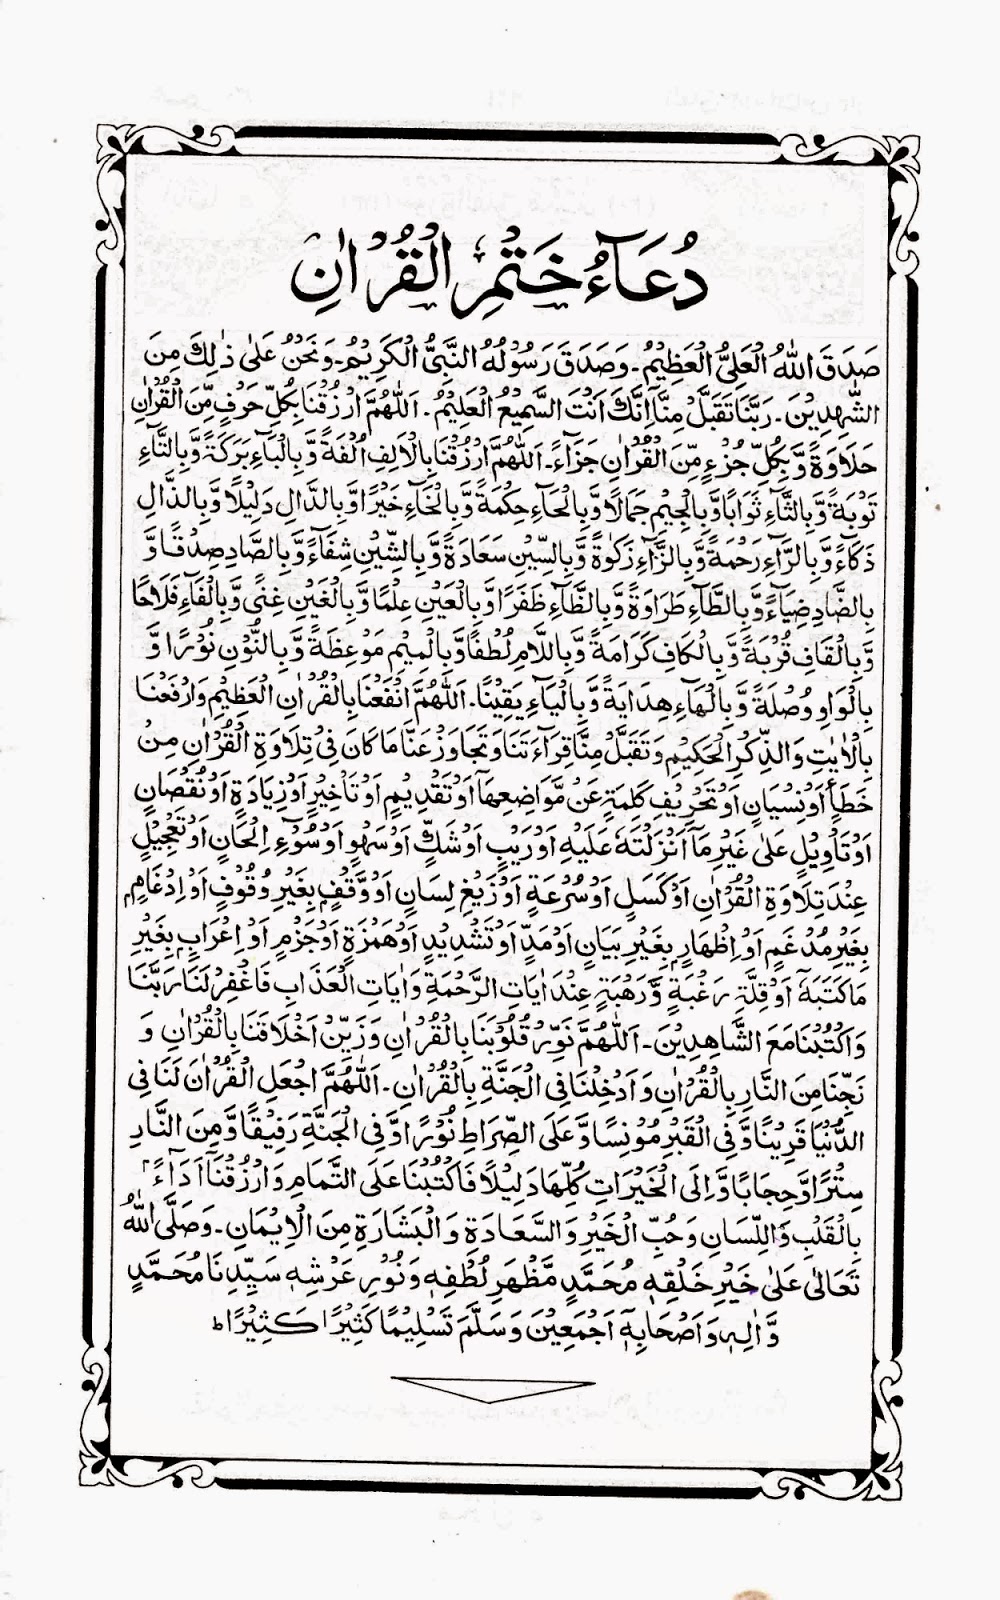 دُعَآءُ خَتْمِ الْقُرْاٰنِ
صَدَقَ اللّٰهُ الْعَلِیُّ الْعَظِیْمُ۔ وَصَدَقَ رَسُوْلُهُ النَّبِیُّ الْكَرِیْمُ۔ وَنَحْنُ عَلٰی ذٰلِكَ مِنَ
الشّٰهِدِیْنَ۔ رَبَّنَا تَقَبَّلْ مِنَّآ اِنَّكَ اَنْتَ السَّمِیْعُ الْعَلِیْمُ۔ اَللّٰهُمَّ ارْزُقْنَا بِكُلِّ حَرْفٍ مِّنَ الْقُرْاٰنِ
حَلَاوَةً وَّبِكُلِّ جُزْءٍ مِّنَ الْقُرْاٰنِ جَزَآءً۔ اَللّٰهُمَّ ارْزُقْنَا بِالْاَلِفِ اُلْفَةً وَّبِالْبَآءِ بَرَكَةً وَّبِالتَّآءِ
تَوْبَةً وَّبِالثَّآءِ ثَوَابًا وَّبِالْجِیْمِ جَمَالًا وَّبِالْحَآءِ حِكْمَةً وَّبِالْخَآءِ خَیْرًا وَّبِالدَّالِ دَلِیْلًا وَّبِالذَّالِ
ذَكَآءً وَّبِالرَّآءِ رَحْمَةً وَّبِالزَّآءِ زَكٰوةً وَّبِالسِّیْنِ سَعَادَةً وَّبِالشِّیْنِ شِفَآءً وَّبِالصَّادِ صِدْقًا وَّ
بِالضَّادِ ضِیَآءً وَّبِالطَّآءِ طَرَاوَةً وَّبِالظَّآءِ ظَفَرًا وَّبِالْعَیْنِ عِلْمًا وَّبِالْغَیْنِ غِنًی وَّبِالْفَآءِ فَلَاحًا
وَّبِالْقَافِ قُرْبَةً وَّبِالْكَافِ كَرَامَةً وَّبِاللَّامِ لُطْفًا وَّبِالْمِیْمِ مَوْعِظَةً وَّبِالنُّوْنِ نُوْرًا وَّ
بِالْوَاوِ وُصْلَةً وَّبِالْهَآءِ هِدَایَةً وَّبِالْیَآءِ یَقِیْنًا۔ اَللّٰهُمَّ انْفَعْنَا بِالْقُرْاٰنِ الْعَظِیْمِ وَارْفَعْنَا
بِالْاٰیٰتِ وَالذِّكْرِ الْحَكِیْمِ وَتَقَبَّلْ مِنَّا قِرَآءَتَنَا وَتَجَاوَزْ عَنَّا مَا كَانَ فِیْ تِلَاوَةِ الْقُرْاٰنِ مِنْ
خَطَاٍ اَوْ نِسْیَانٍ اَوْ تَحْرِیْفِ كَلِمَةٍ عَنْ مَّوَاضِعِهَآ اَوْ تَقْدِیْمٍ اَوْ تَاْخِیْرٍ اَوْ زِیَادَةٍ اَوْ نُقْصَانٍ
اَوْ تَاْوِیْلٍ عَلٰی غَیْرِ مَآ اَنْزَلْتَهٗ عَلَیْهِ اَوْ رَیْبٍ اَوْ شَكٍّ اَوْ سَهْوٍ اَوْ سُوْٓءِ اِلْحَانٍ اَوْ تَعْجِیْلٍ
عِنْدَ تِلَاوَةِ الْقُرْاٰنِ اَوْ كَسَلٍ اَوْ سُرْعَةٍ اَوْ زَیْغِ لِسَانٍ اَوْ وَقْفٍ بِغَیْرِ وُقُوْفٍ اَوْ اِدْغَامٍ
بِغَیْرِ مُدْغَمٍ اَوْ اِظْهَارٍ بِغَیْرِ بَیَانٍ اَوْ مَدٍّ اَوْ تَشْدِیْدٍ اَوْ هَمْزَةٍ اَوْ جَزْمٍ اَوْ اِعْرَابٍ بِغَیْرِ
مَا كَتَبَهٗٓ اَوْ قِلَّةِ رَغْبَةٍ وَّرَهْبَةٍ عِنْدَ اٰیَاتِ الرَّحْمَةِ وَاٰیَاتِ الْعَذَابِ فَاغْفِرْ لَنَا رَبَّنَا
وَاكْتُبْنَا مَعَ الشَّاهِدِیْنَ۔ اَللّٰهُمَّ نَوِّرْ قُلُوْبَنَا بِالْقُرْاٰنِ وَزَیِّنْ اَخْلَاقَنَا بِالْقُرْاٰنِ وَ
نَجِّنَا مِنَ النَّارِ بِالْقُرْاٰنِ وَاَدْخِلْنَا فِی الْجَنَّةِ بِالْقُرْاٰنِ۔ اَللّٰهُمَّ اجْعَلِ الْقُرْاٰنَ لَنَا فِی
الدُّنْیَا قَرِیْنًا وَّفِی الْقَبْرِ مُوْنِسًا وَّعَلَی الصِّرَاطِ نُوْرًا وَّفِی الْجَنَّةِ رَفِیْقًا وَّمِنَ النَّارِ
سِتْرًا وَّحِجَابًا وَّاِلَی الْخَیْرَاتِ كُلِّهَا دَلِیْلًا فَاكْتُبْنَا عَلَی التَّمَامِ وَارْزُقْنَآ اَدَآءً
بِالْقَلْبِ وَاللِّسَانِ وَحُبِّ الْخَیْرِ وَالسَّعَادَةِ وَالْبَشَارَةِ مِنَ الْاِیْمَانِ۔ وَصَلَّی اللّٰهُ
تَعَالٰی عَلٰی خَیْرِ خَلْقِهٖ مُحَمَّدٍ مَّظْهَرِ لُطْفِهٖ وَنُوْرِ عَرْشِهٖ سَیِّدِنَا مُحَمَّدٍ
وَّاٰلِهٖ وَاَصْحَابِهٖٓ اَجْمَعِیْنَ وَسَلَّمَ تَسْلِیْمًا كَثِیْرًا كَثِیْرًا ط